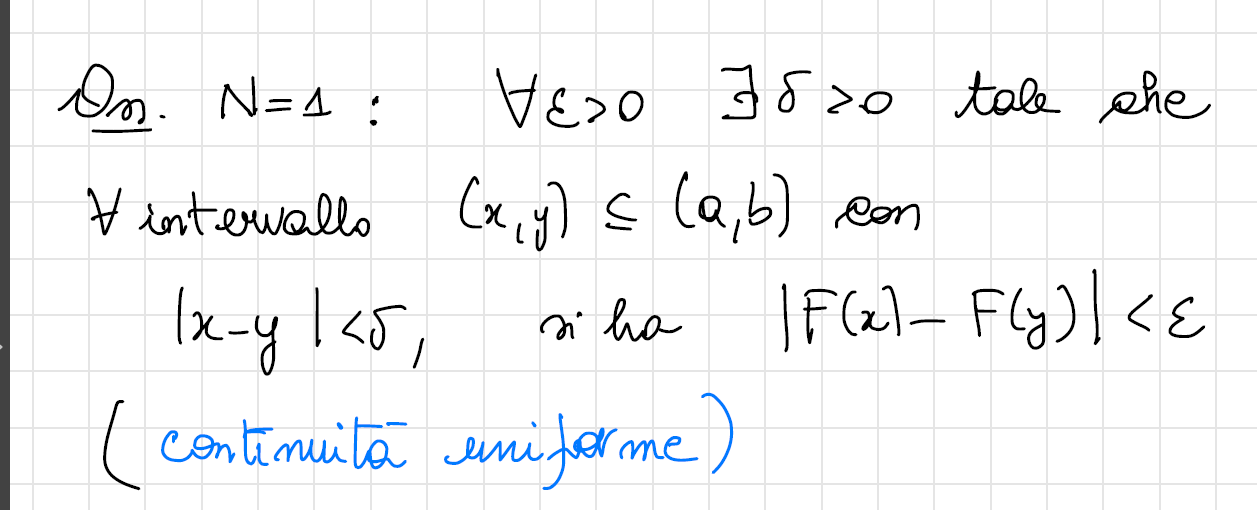 Oss. N=1 : ∀ε>0 ∃δ>0 tale che
∀ intervallo (x,y) ⊆ (a,b) con
|x-y|<δ, si ha |F(x)-F(y)|<ε
(continuità uniforme)